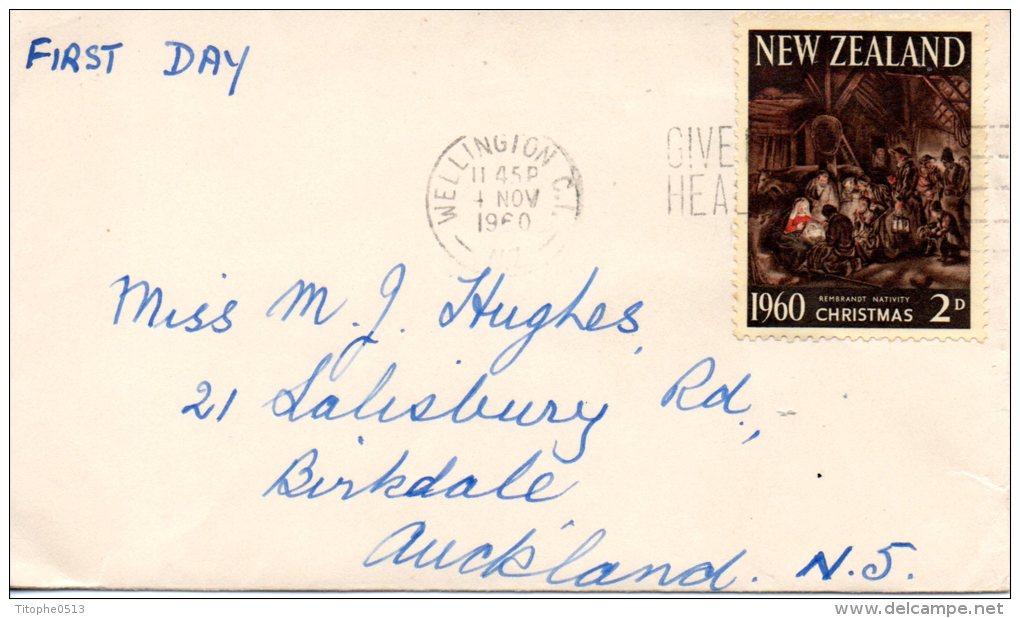 FIRST DAY
NEW ZEALAND
WELLINGTON C.1.
11 45P
4 NOV
1960
GIVE
HEAL
1960 REMBRANDT NATIVITY CHRISTMAS 2D
Miss M. J. Hughes,
21 Salisbury Rd.,
Birkdale
Auckland. N.5.
Titophe0513
delcampe.net